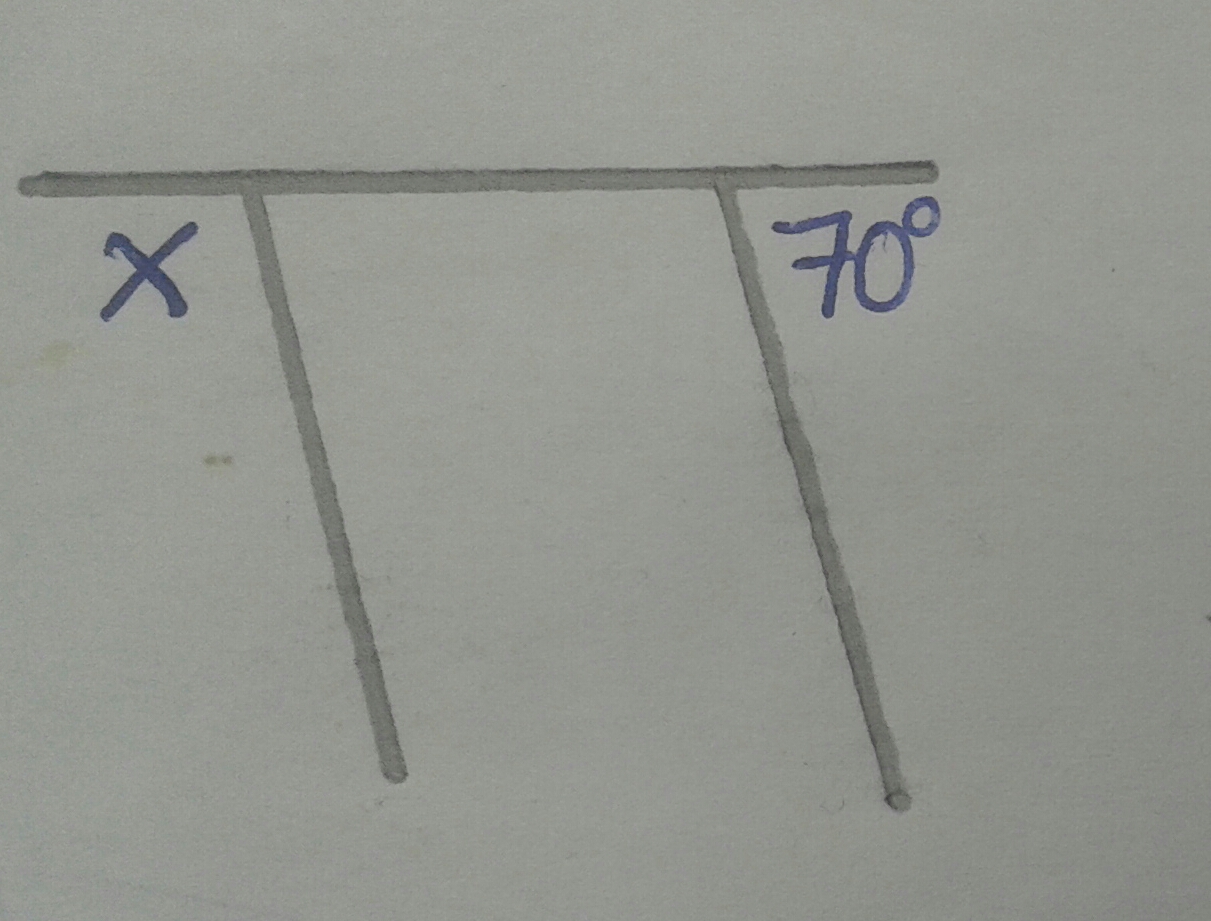 x 70°